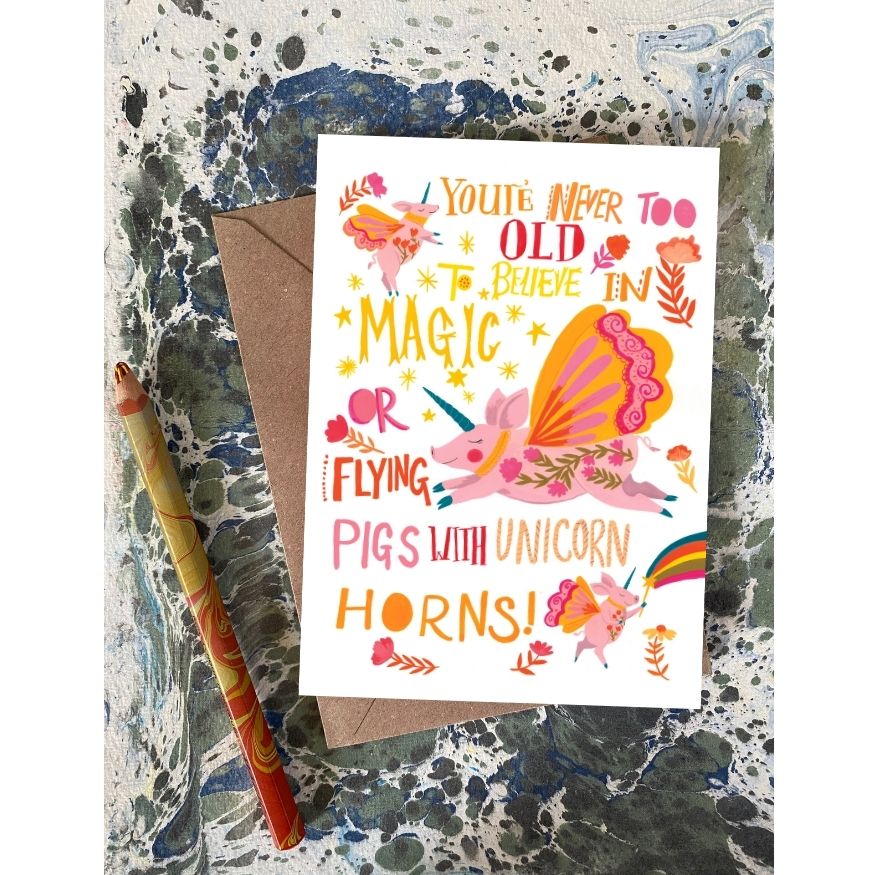 YOU'RE NEVER TOO
OLD
TO BELIEVE IN
MAGIC
OR
FLYING
PIGS WITH UNICORN
HORNS!